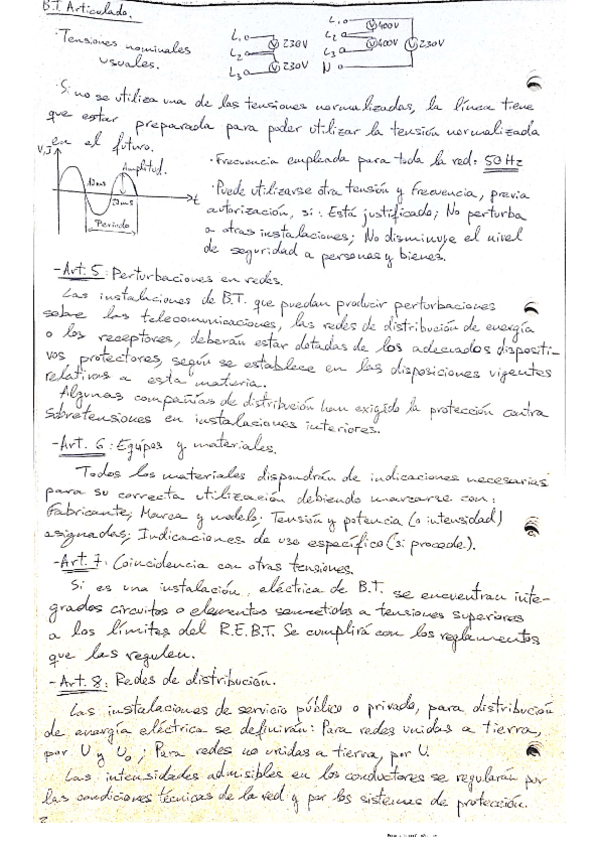 B.T. Articulado.
· Tensiones nominales
usuales.
L₁ L₂ L₃ V 230V V 230V
L₁ L₂ L₃ N V 400V V 400V V 230V
· Si no se utiliza una de las tensiones normalizadas, la línea tiene
que estar preparada para poder utilizar la tensión normalizada
en el futuro.
Amplitud.
10ms
20ms
t
Periodo
· Frecuencia empleada para toda la red: 50 Hz
· Puede utilizarse otra tensión y frecuencia, previa
autorización, si: Está justificado; No perturba
a otras instalaciones; No disminuye el nivel
de seguridad a personas y bienes.
- Art. 5: Perturbaciones en redes.
Las instalaciones de B.T. que puedan producir perturbaciones
sobre las telecomunicaciones, las redes de distribución de energía
o los receptores, deberán estar dotadas de los adecuados dispositi-
vos protectores, según se establece en las disposiciones vigentes
relativas a esta materia.
Algunas compañías de distribución han exigido la protección contra
sobretensiones en instalaciones interiores.
- Art. 6: Equipos y materiales.
Todos los materiales dispondrán de indicaciones necesarias
para su correcta utilización debiendo marcarse con:
Fabricante; Marca y modelo; Tensión y potencia (o intensidad)
asignadas; Indicaciones de uso específico (si procede).
- Art. 7: Coincidencia con otras tensiones.
Si es una instalación eléctrica de B.T. se encuentran inte-
grados circuitos o elementos sometidos a tensiones superiores
a los límites del R.E.B.T. Se cumplirá con los reglamentos
que las regulen.
- Art. 8: Redes de distribución.
Las instalaciones de servicio público o privado, para distribución
de energía eléctrica se definirán: Para redes unidas a tierra,
por U y U₀; Para redes no unidas a tierra, por U.
Las intensidades admisibles en los conductores se regularán por
las condiciones técnicas de la red y por los sistemas de protección.
2